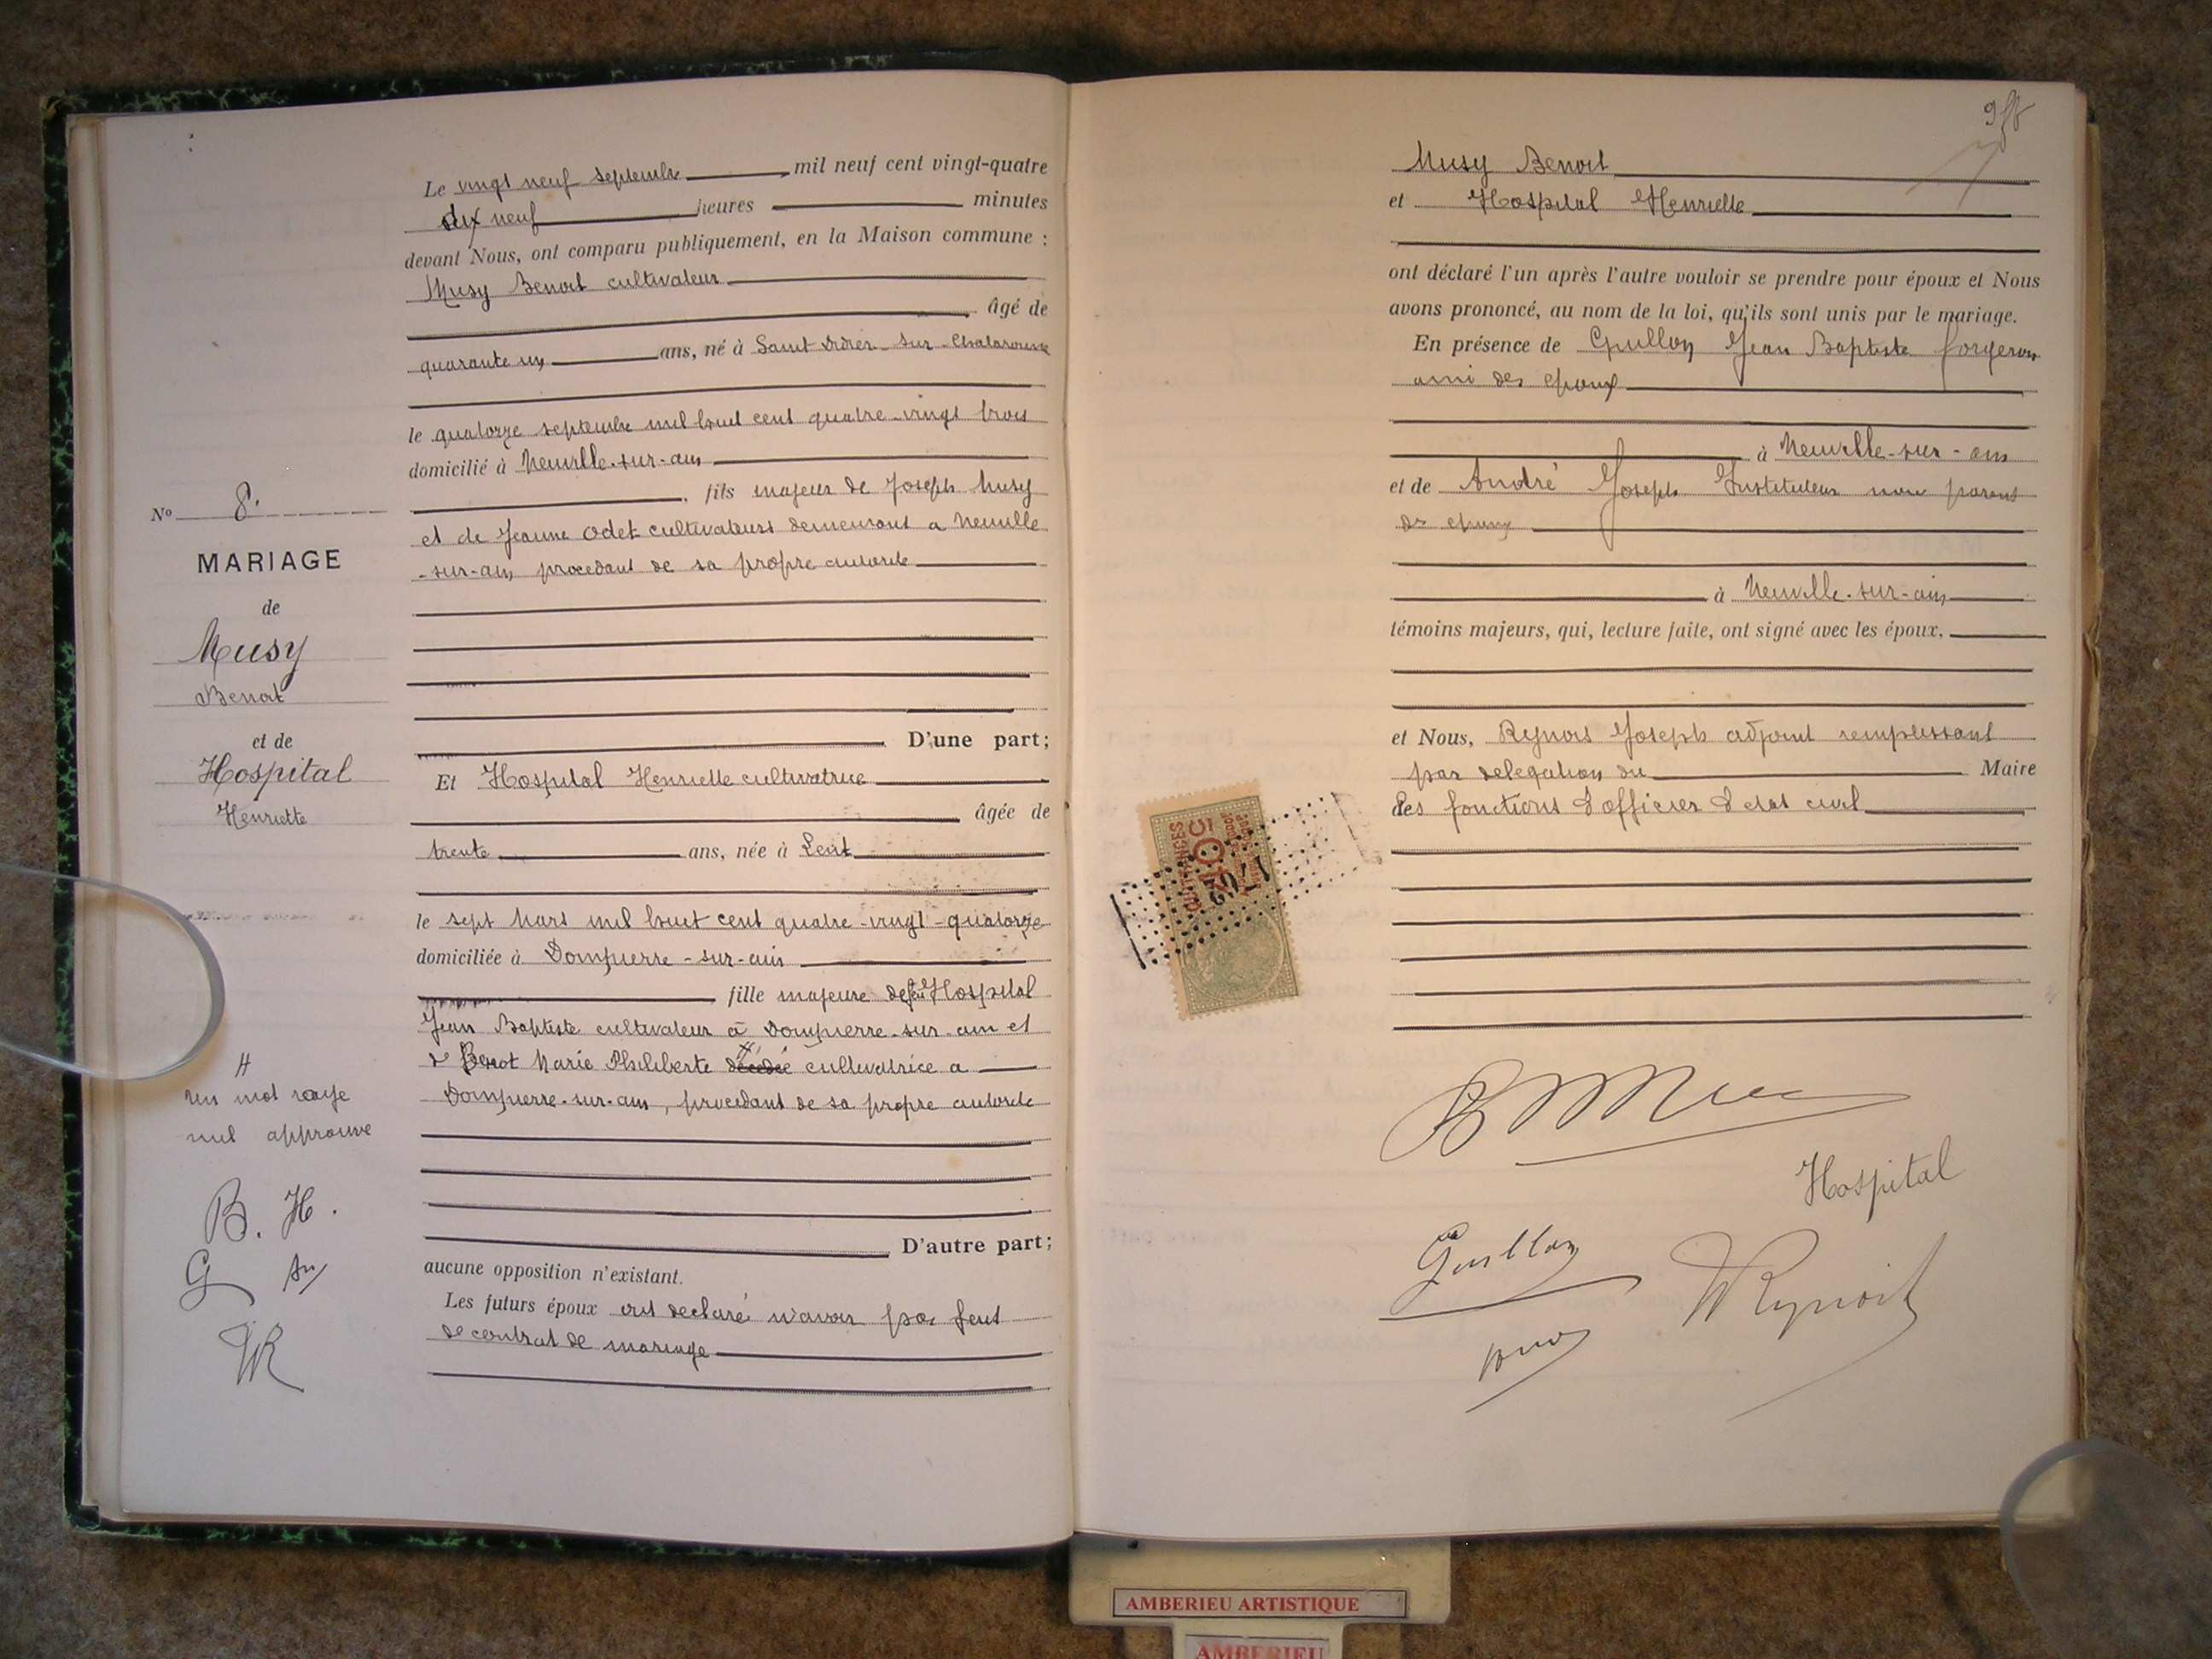 N° 8.
MARIAGE
de
Musy
Benoit
et de
Hospital
Henriette
H
un mot raye
nul approuve
B. H.
G
Le vingt neuf septembre mil neuf cent vingt-quatre
dix neuf heures minutes
devant Nous, ont comparu publiquement, en la Maison commune :
Musy Benoit cultivateur
âgé de
quarante un ans, né à Saint Didier sur Chalaronne
le quatorze septembre mil huit cent quatre-vingt trois
domicilié à Neuville-sur-ain
fils majeur de Joseph Musy
et de Jeanne Odet cultivateurs demeurant a Neuville
-sur-ain, procedant de sa propre autorite
D'une part;
Et Hospital Henriette cultivatrice
âgée de
trente ans, née à Lent
le sept Mars mil huit cent quatre-vingt-quatorze
domiciliée à Dompierre-sur-ain
fille majeure de feu Hospital
Jean Baptiste cultivateur à Dompierre-sur-ain et
Marie Philiberte décédée cultivatrice a
Dompierre-sur-ain, procedant de sa propre autorite
D'autre part;
aucune opposition n'existant.
Les futurs époux ont declaré n'avoir pas fait
de contrat de mariage
Musy Benoit
et Hospital Henriette
ont déclaré l'un après l'autre vouloir se prendre pour époux et Nous
avons prononcé, au nom de la loi, qu'ils sont unis par le mariage.
En présence de Guillon Jean Baptiste forgeron
ami des epoux
à Neuville-sur-ain
et de André Joseph Instituteur non parent
des epoux
à Neuville-sur-ain
témoins majeurs, qui, lecture faite, ont signé avec les époux.
et Nous, Reynois Joseph adjoint remplissant
par delegation du Maire
les fonctions d'officier d'etat civil
QUITTANCES
10c
B Mu
Hospital
Guillon
AMBERIEU ARTISTIQUE
AMBERIEU